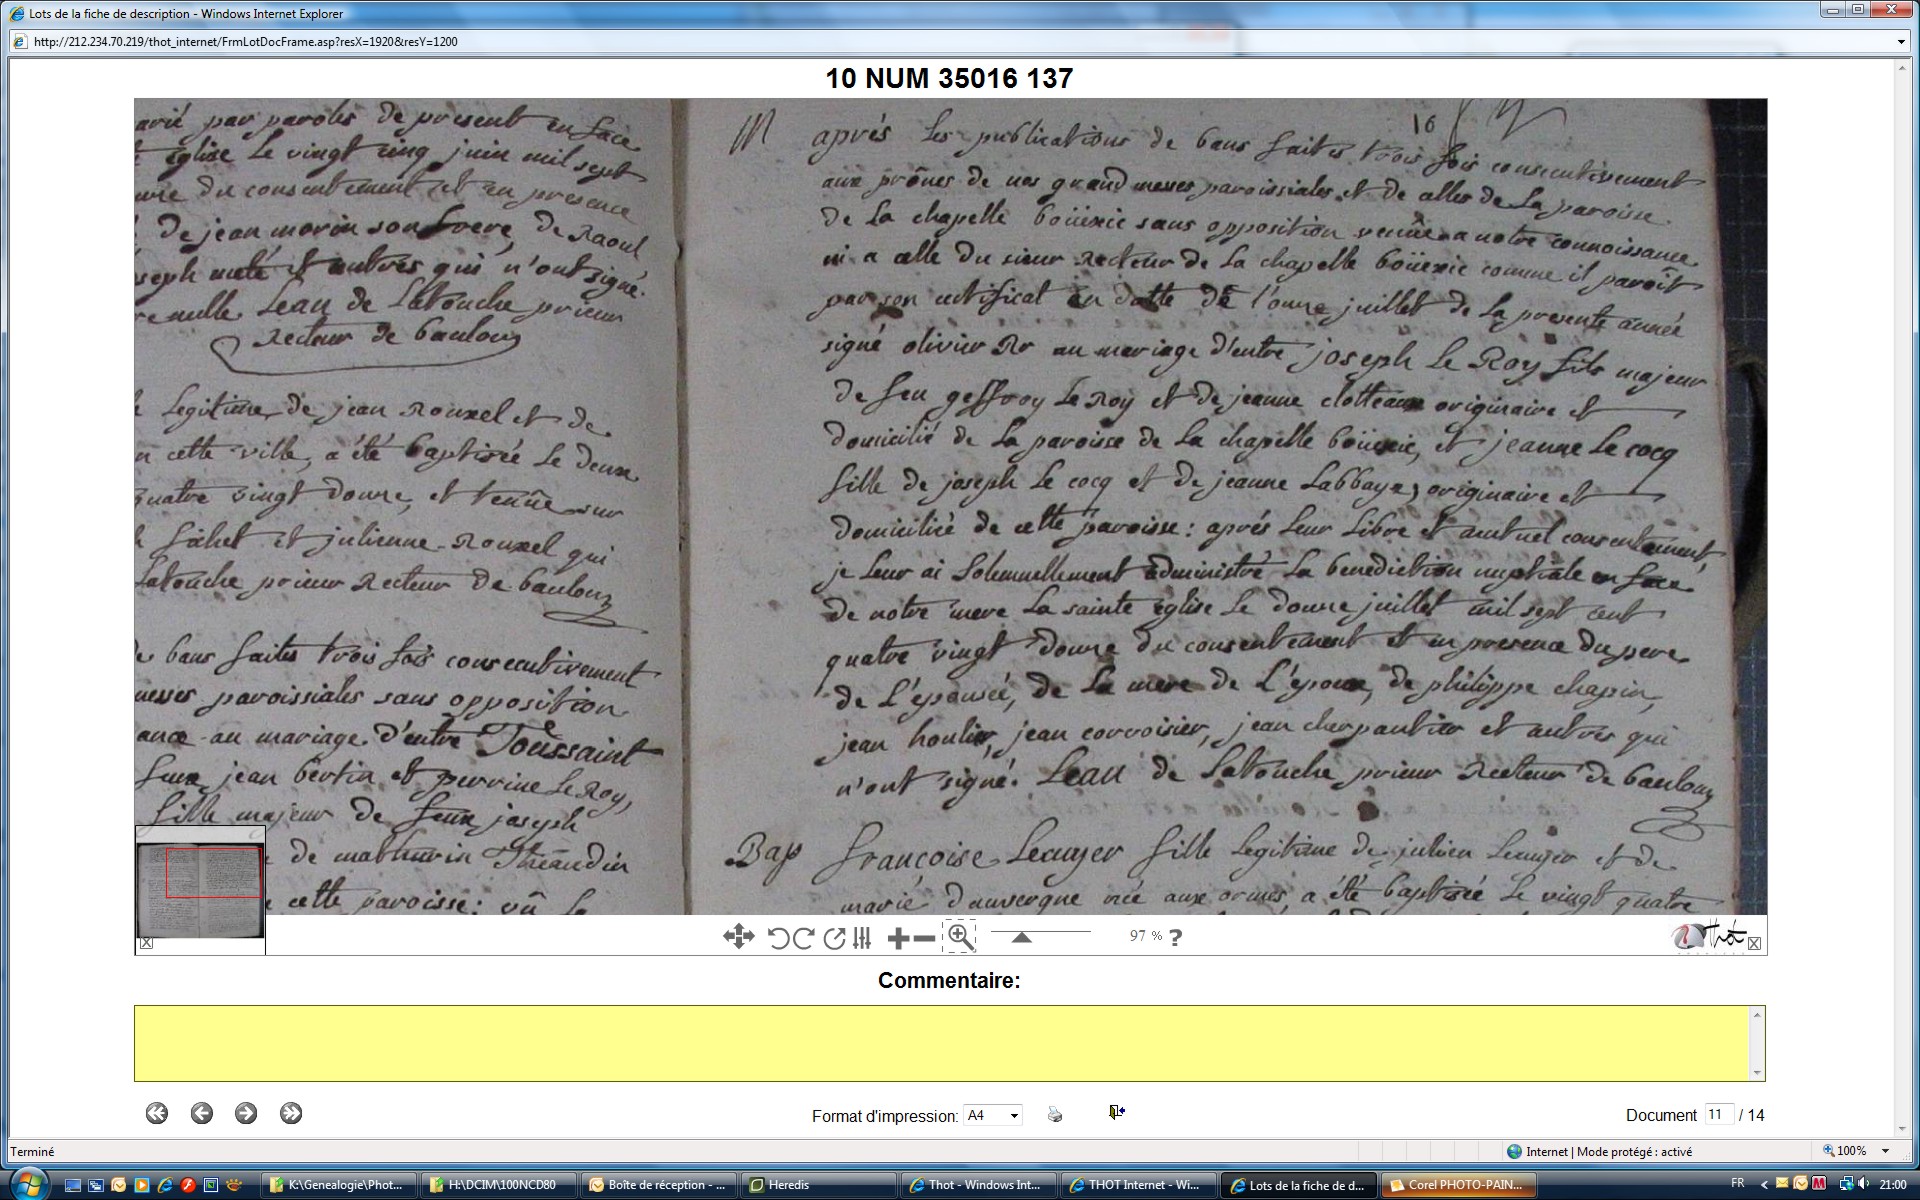 Lots de la fiche de description - Windows Internet Explorer
http://212.234.70.219/thot_internet/FrmLotDocFrame.asp?resX=1920&resY=1200
10 NUM 35016 137
arié par paroles de present en face
église Le vingt cinq juin mil sept
du consentement et en presence
de jean morin son frere, de Raoul
seph et autres qui n'ont signé.
Léan de Latouche prieur
Recteur de baulon
Legitime de jean Rouxel et de
n cette ville, a été baptisée Le deux
quatre vingt douze, et tenüe sur
et julienne Rouxel qui
Latouche prieur Recteur de baulon
de bans faites trois fois consecutivement
messes paroissiales sans opposition
ance au mariage d'entre Toussaint
feux jean bertin et perrine Le Roy,
fille majeur de feux joseph
de mathurin
cette paroisse: vû Le
16
M
aprés Les publications de bans faites trois fois consecutivement
aux prônes de nos grand messes paroissiales et de celles de La paroisse
de La chapelle boüexic sans opposition venüe a notre connoissance
ni a celle du sieur Recteur de La chapelle boüexic comme il paroit
par son certificat en datte de l'onze juillet de La presente année
signé olivier Rr au mariage d'entre joseph Le Roy fils majeur
de feu geffroy Le Roy et de jeanne clotteaux originaire et
domicilié de La paroisse de La chapelle boüexic, et jeanne Le cocq
fille de joseph Le cocq et de jeanne Labbaye, originaire et
domicilié de cette paroisse: aprés Leur Libre et mutuel consentement,
je Leur ai solemnellement administré La benediction nuptiale en face
de notre mere La sainte église Le douze juillet mil sept cent
quatre vingt douze du consentement et en presence du pere
de L'épousée, de La mere de L'époux, de philippe chapin,
jean houlier, jean corvoisier, jean charpentier et autres qui
n'ont signé. Léan de Latouche prieur Recteur de baulon
Bap
françoise Lecuyer fille Legitime de julien Lecuyer et de
marie d'auvergne née aux ormes, a été baptisée Le vingt quatre
97 % ?
Thot
Commentaire:
Format d'impression: A4
Document 11 / 14
Terminé
Internet | Mode protégé : activé
100%
K:\Genealogie\Phot...
H:\DCIM\100NCD80
Boîte de réception - ...
Heredis
Thot - Windows Int...
THOT Internet - Wi...
Lots de la fiche de d...
Corel PHOTO-PAIN...
FR
21:00